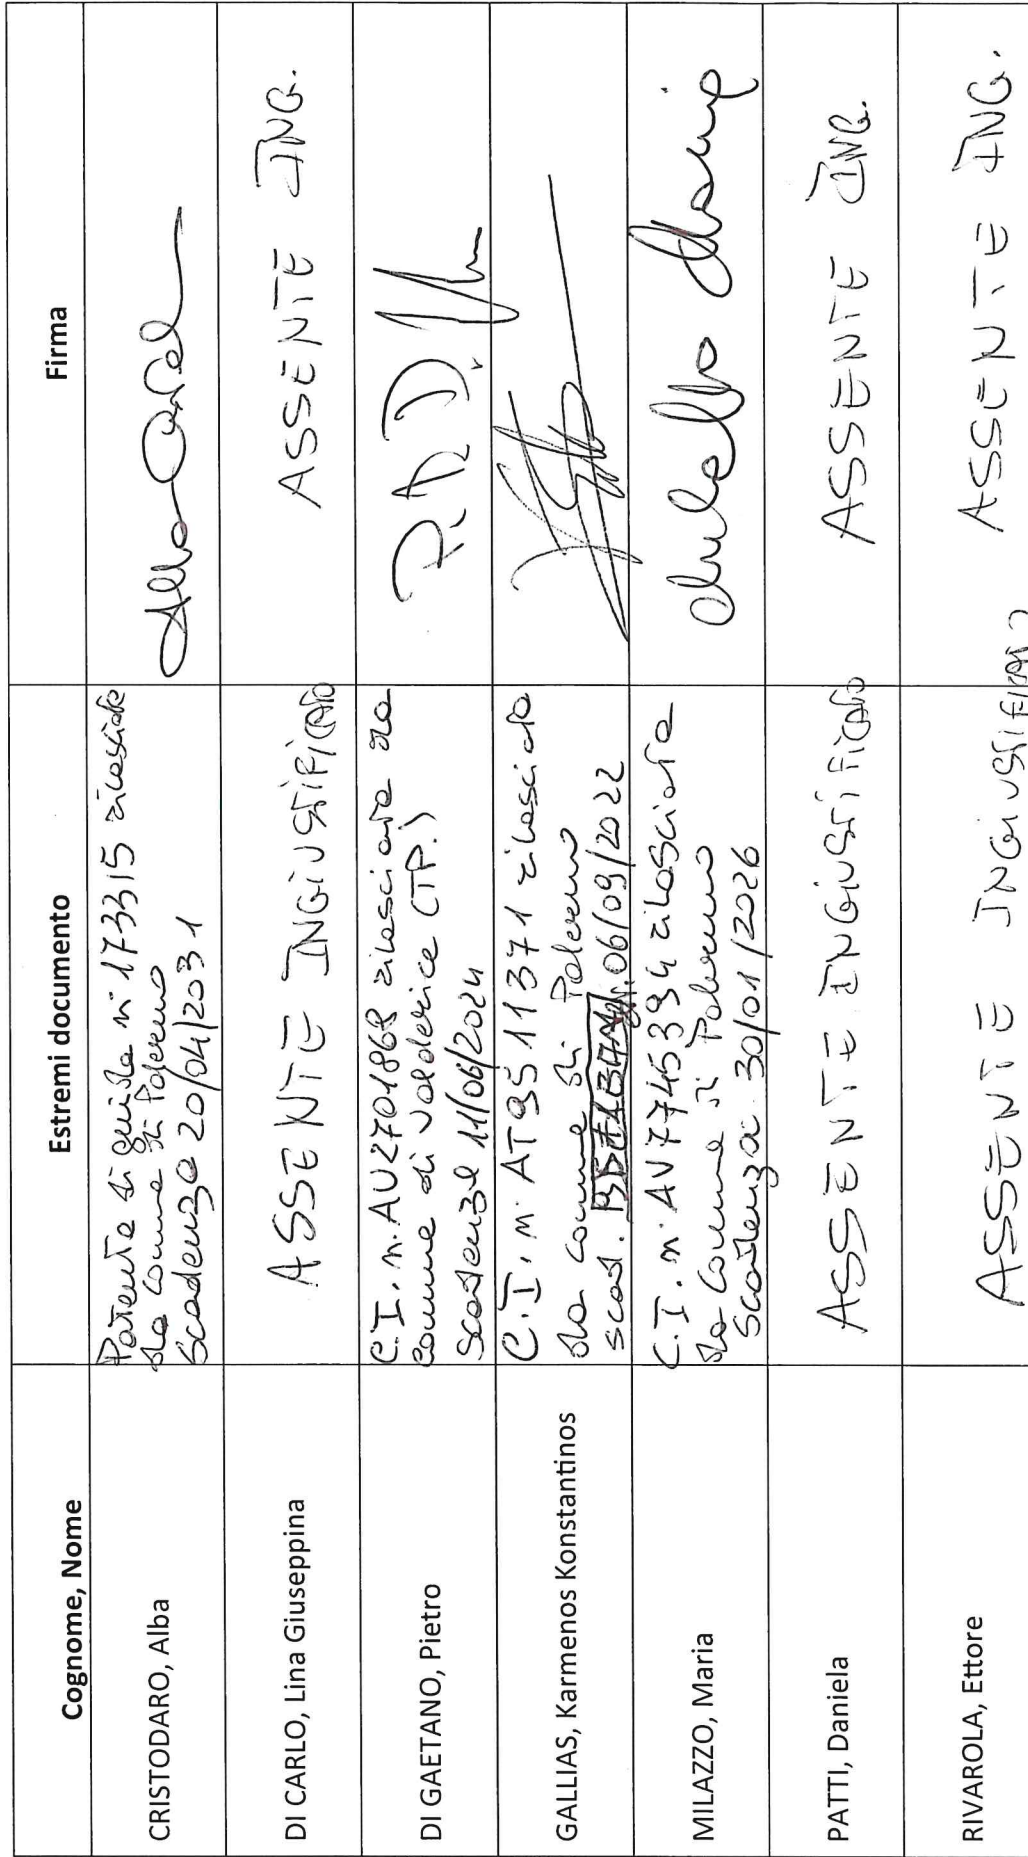 Cognome, Nome
Estremi documento
Firma
CRISTODARO, Alba
Patente di guida n° 173315 rilasciata
da Comune di Palermo
Scadenza 20/04/2031
Alba
DI CARLO, Lina Giuseppina
ASSENTE INGIUSTIFICATO
ASSENTE ING.
DI GAETANO, Pietro
C.I. n. AU2701868 rilasciata da
Comune di Valderice (TP.)
scadenza 11/06/2024
GALLIAS, Karmenos Konstantinos
C.I. n. AT9511371 rilasciata
da comune di Palermo
scad. 06/09/2022
MILAZZO, Maria
C.I. n. AV7745394 rilasciata
da Comune di Palermo
Scadenza 30/01/2026
Milazzo Maria
PATTI, Daniela
ASSENTE INGIUSTIFICATO
ASSENTE ING.
RIVAROLA, Ettore
ASSENTE INGIUSTIFICATO
ASSENTE ING.